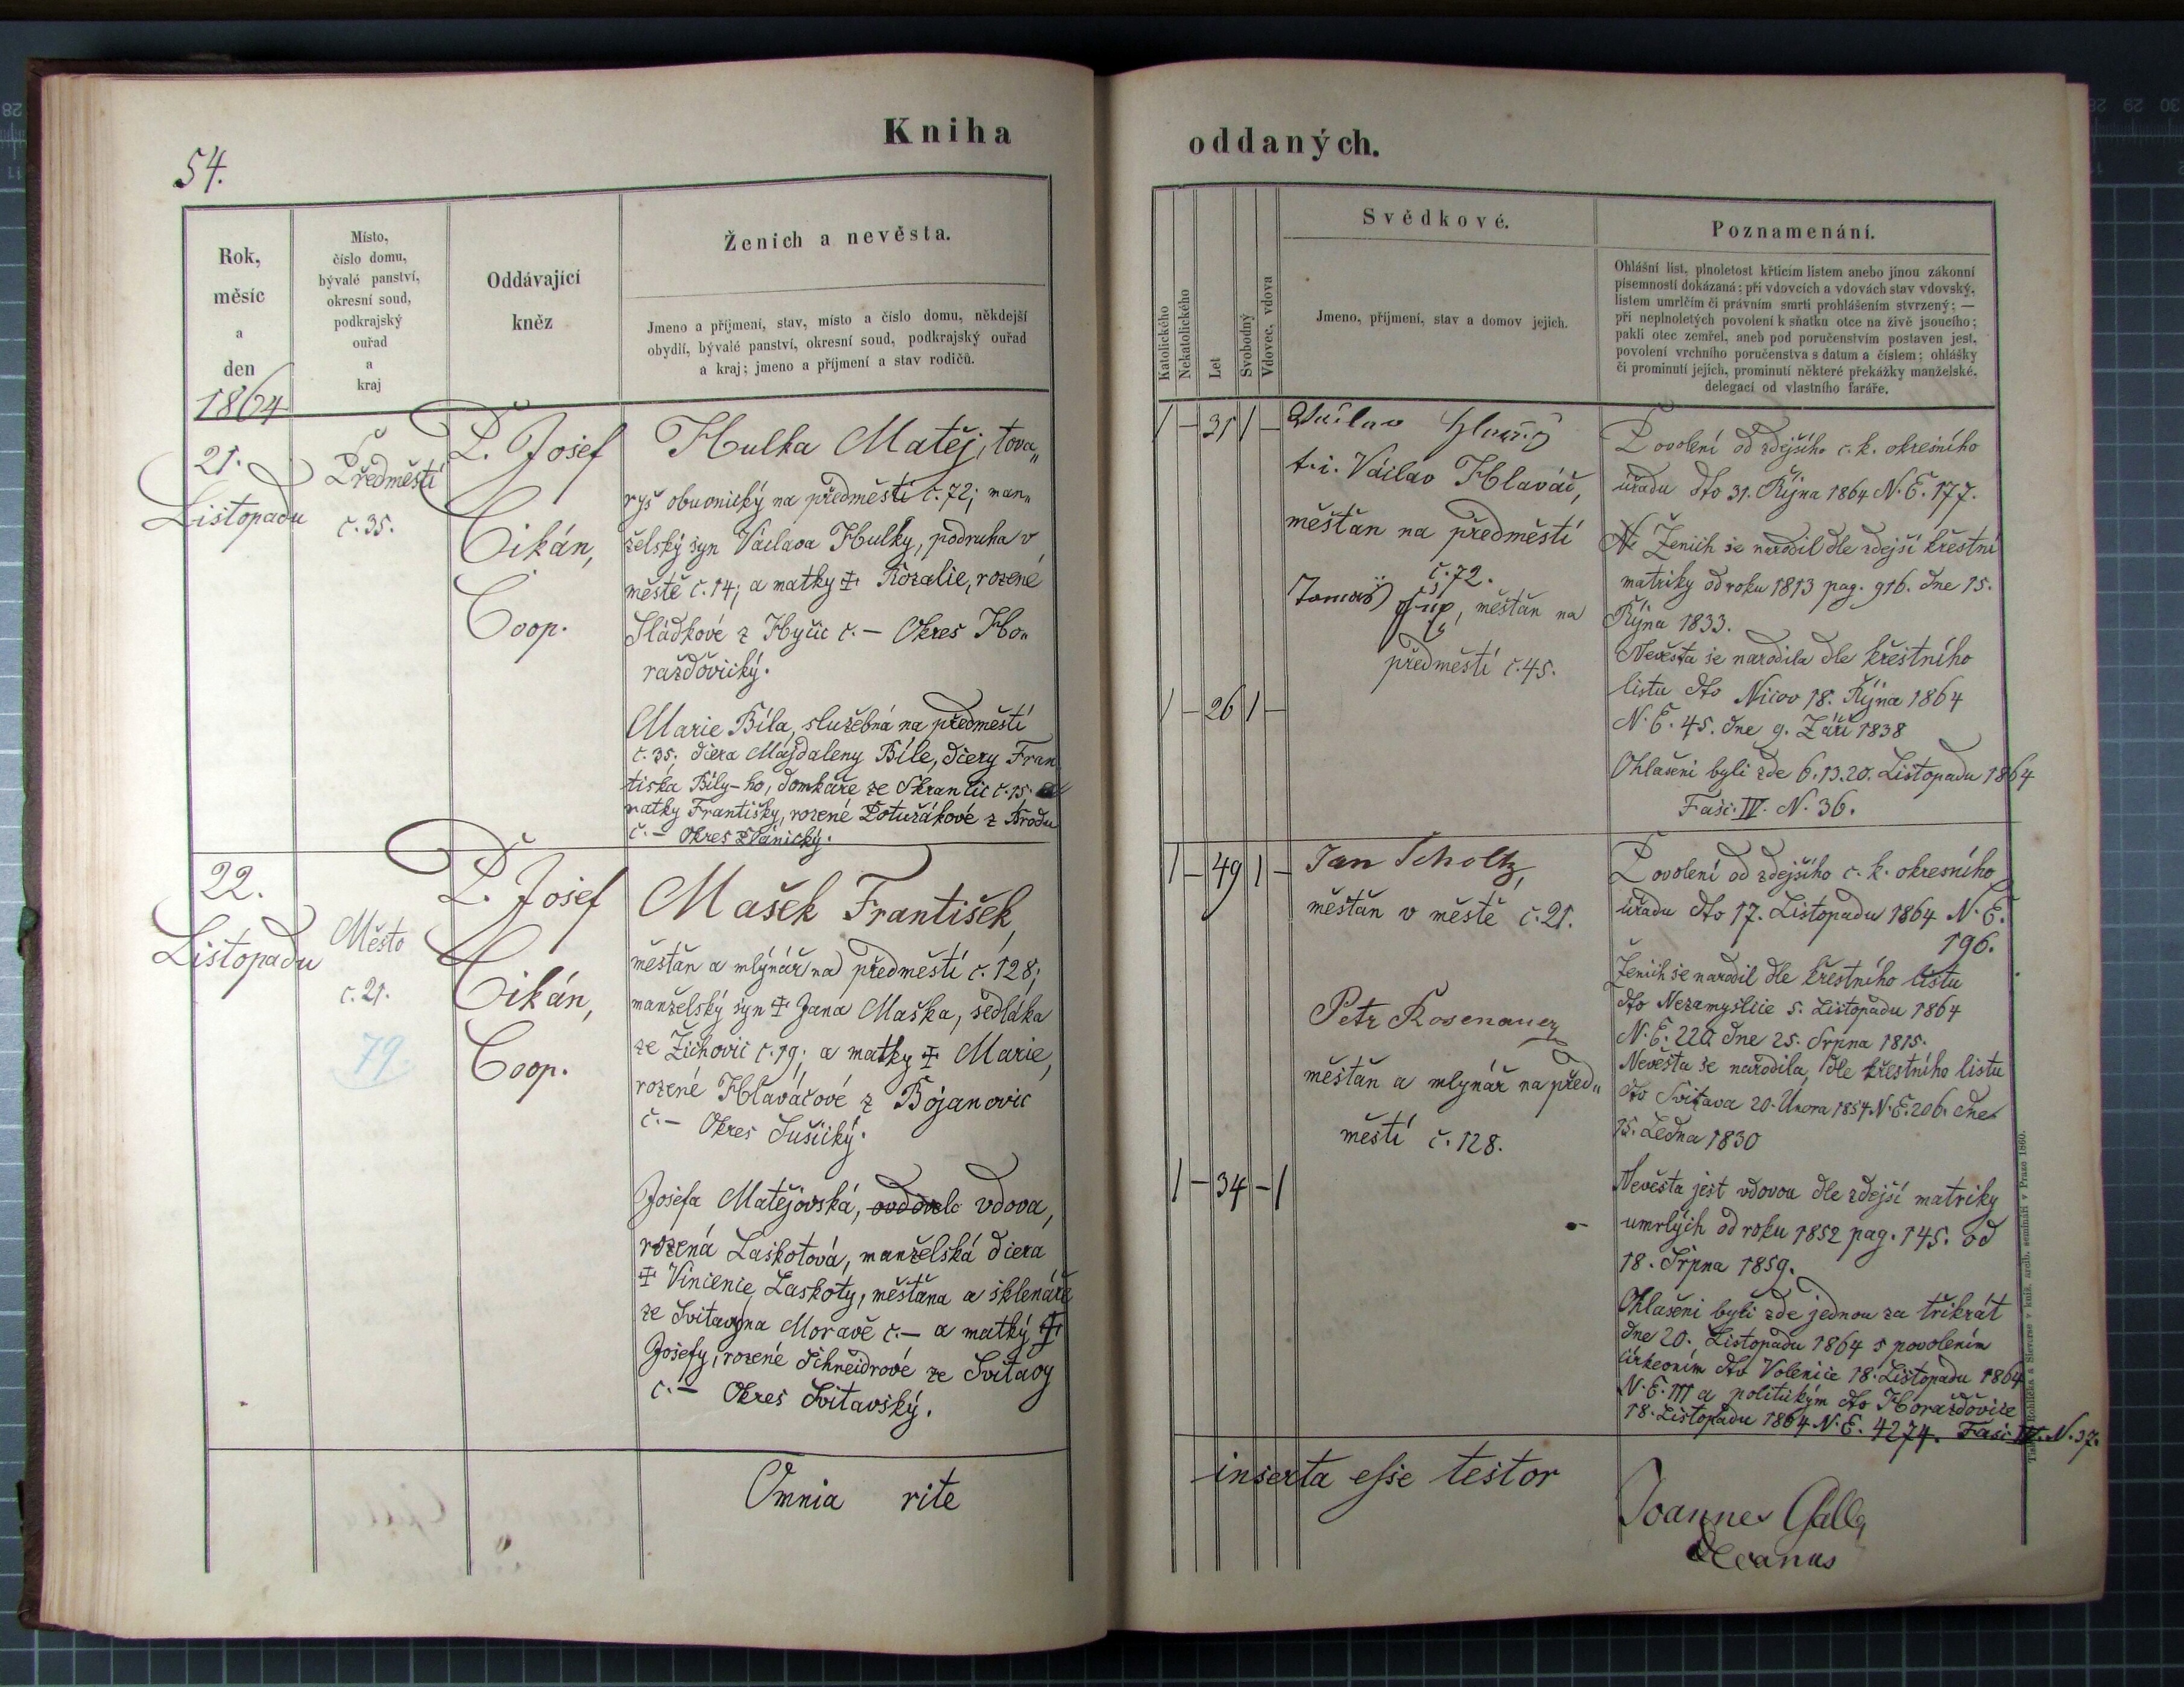 Kniha
54.
Rok,
měsíc
a
den
Místo,
číslo domu,
bývalé panství,
okresní soud,
podkrajský
ouřad
a
kraj
Oddávající
kněz
Ženich a nevěsta.
Jmeno a příjmení, stav, místo a číslo domu, někdejší
obydlí, bývalé panství, okresní soud, podkrajský ouřad
a kraj; jmeno a příjmení a stav rodičů.
1864
21.
Listopadu
Předměstí
č. 35.
P. Josef
Cikán,
Coop.
Hulka Matěj, tova„
ryš obuvnický na předměstí č. 72; man„
želský syn Václava Hulky, podruha v
městě č. 14; a matky ‡ Rozalie, rozené
Sládkové z Hyčic č. – Okres Ho„
ražďovický.
Marie Bíla, služebná na předměstí
č. 35; dcera Majdaleny Bíle, dcery Fran
tiska Bílý-ho, domkáře ze Skrančic č. 15.
matky Františky, rozené Potužákové z Brodu
č. – Okres Plánický.
22.
Listopadu
Město
č. 21.
79.
P. Josef
Cikán,
Coop.
Mašek František,
měšťan a mlýnář na předměstí č. 128;
manželský syn ‡ Jana Maška, sedláka
ze Žichovic č. 19; a matky ‡ Marie,
rozené Hlaváčové z Bojanovic
č. – Okres Sušický.
Josefa Matějovská, vdova,
rozená Laskotová, manželská dcera
‡ Vincencie Laskoty, měšťana a sklenáře
ze Svitavy na Moravě č. – a matky ‡
Josefy, rozené Schneidrové ze Svitavy
č. – Okres Svitavský.
Omnia rite
oddaných.
Katolického
Nekatolického
Let
Svobodný
Vdovec, vdova
Svědkové.
Jmeno, příjmení, stav a domov jejich.
Poznamenání.
Ohlášní list, plnoletost křticím listem anebo jinou zákonní
písemností dokázaná; při vdovcích a vdovách stav vdovský,
listem umrlčím či právním smrti prohlášením stvrzený; —
při neplnoletých povolení k sňatku otce na živě jsoucího;
pakli otec zemřel, aneb pod poručenstvím postaven jest,
povolení vrchního poručenstva s datum a číslem; ohlášky
či prominutí jejich, prominutí některé překážky manželské,
delegací od vlastního faráře.
1 – 31 1 –
t. i. Václav Hlaváč,
měšťan na předměstí
č. 72.
Tomáš
měšťan na
předměstí č. 45.
1 – 26 1 –
Povolení od zdejšího c. k. okresního
úřadu dto 31. Října 1864 N. E. 177.
Ženich se narodil dle zdejší křestní
matriky od roku 1813 pag. 916. dne 15.
Října 1833.
Nevěsta se narodila dle křestního
listu dto Nicov 18. Října 1864
N. E. 45. dne 9. Září 1838
Ohlašeni byli zde 6. 13. 20. Listopadu 1864
Fasc. IV. N. 36.
1 – 49 1 –
Jan Scholtz,
měšťan v městě č. 21.
Petr Rosenauer
měšťan a mlynář na před„
městí č. 128.
1 – 34 – 1
Povolení od zdejšího c. k. okresního
úřadu dto 17. Listopadu 1864 N. E.
196.
Ženich se narodil dle křestního listu
dto Nezamyslice 5. Listopadu 1864
N. E. 220 dne 25. Srpna 1815.
Nevěsta se narodila, dle křestního listu
dto Svitava 20. Února 1854 N. E. 206. dne
15. Ledna 1830
Nevěsta jest vdovou dle zdejší matriky
umrlých od roku 1852 pag. 145. od
18. Srpna 1859.
Ohlašeni byli zde jednou za třikrát
dne 20. Listopadu 1864 s povolením
církevním dto Volenice 18. Listopadu 1864
N. E. 111 a politickým dto Horažďovice
18. Listopadu 1864 N. E. 4274. Fasc. IV. N. 37.
inserta esse testor
Joannes Galla
Decanus